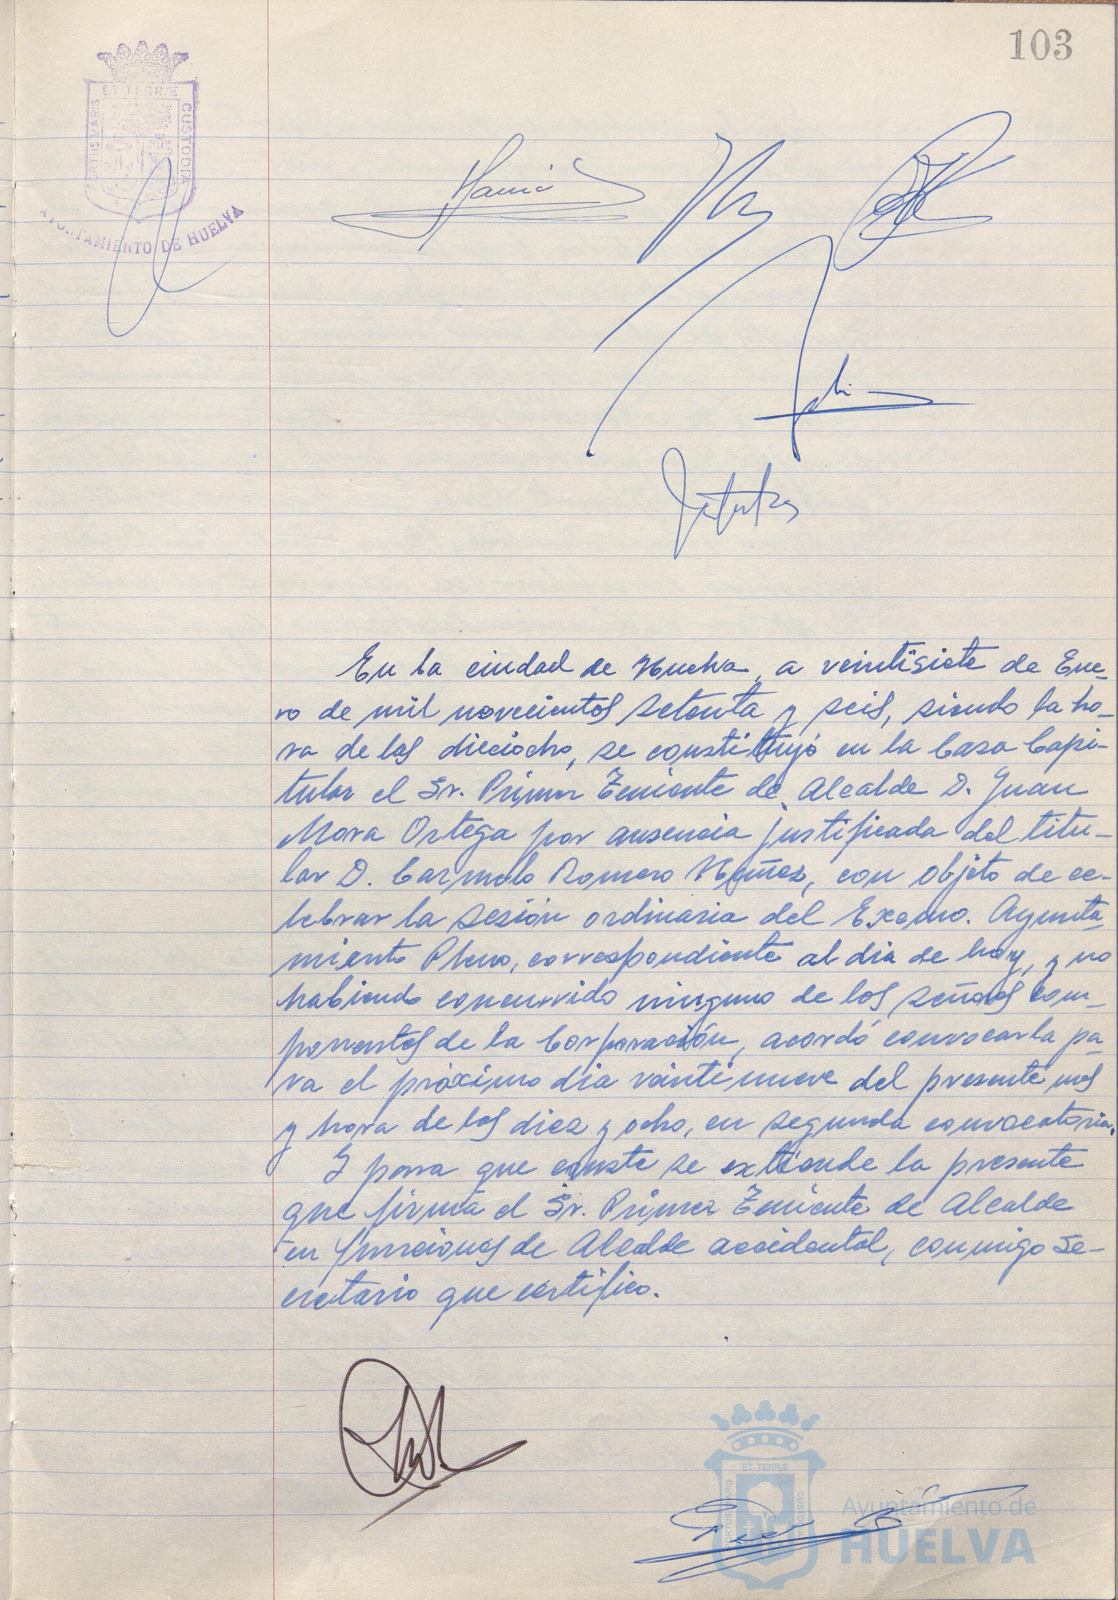 103
ET TERRÆ
PORTUS MARIS
CUSTODIA
AYUNTAMIENTO DE HUELVA
En la ciudad de Huelva, a veintisiete de Ene-
ro de mil novecientos setenta y seis, siendo la ho-
ra de las dieciocho, se constituyó en la Casa Capi-
tular el Sr. Primer Teniente de Alcalde D. Juan
Mora Ortega por ausencia justificada del titu-
lar D. Carmelo Romero Núñez, con objeto de ce-
lebrar la sesión ordinaria del Excmo. Ayunta-
miento Pleno, correspondiente al dia de hoy, y no
habiendo concurrido ninguno de los señores com-
ponentes de la Corporación, acordó convocarla pa-
ra el próximo dia veintinueve del presente mes
y hora de las diez y ocho, en segunda convocatoria.
Y para que conste se extiende la presente
que firma el Sr. Primer Teniente de Alcalde
en funciones de Alcalde accidental, conmigo Se-
cretario que certifico.
ET TERRÆ
PORTUS MARIS
CUSTODIA
Ayuntamiento de
HUELVA